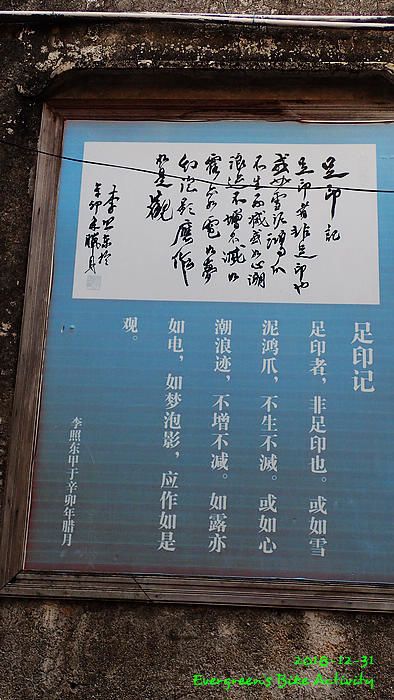 足印記
足印者非足印也
或如雪泥鴻爪
不生不滅或如心潮
浪迹不增不減如
露亦如電如夢
幻泡影應作
如是觀
李照东於
辛卯年臘月
足印记
足印者，非足印也。或如雪
泥鸿爪，不生不灭。或如心
潮浪迹，不增不减。如露亦
如电，如梦泡影，应作如是
观。
李照东甲于辛卯年腊月
2018-12-31
Evergreen's Bike Activity